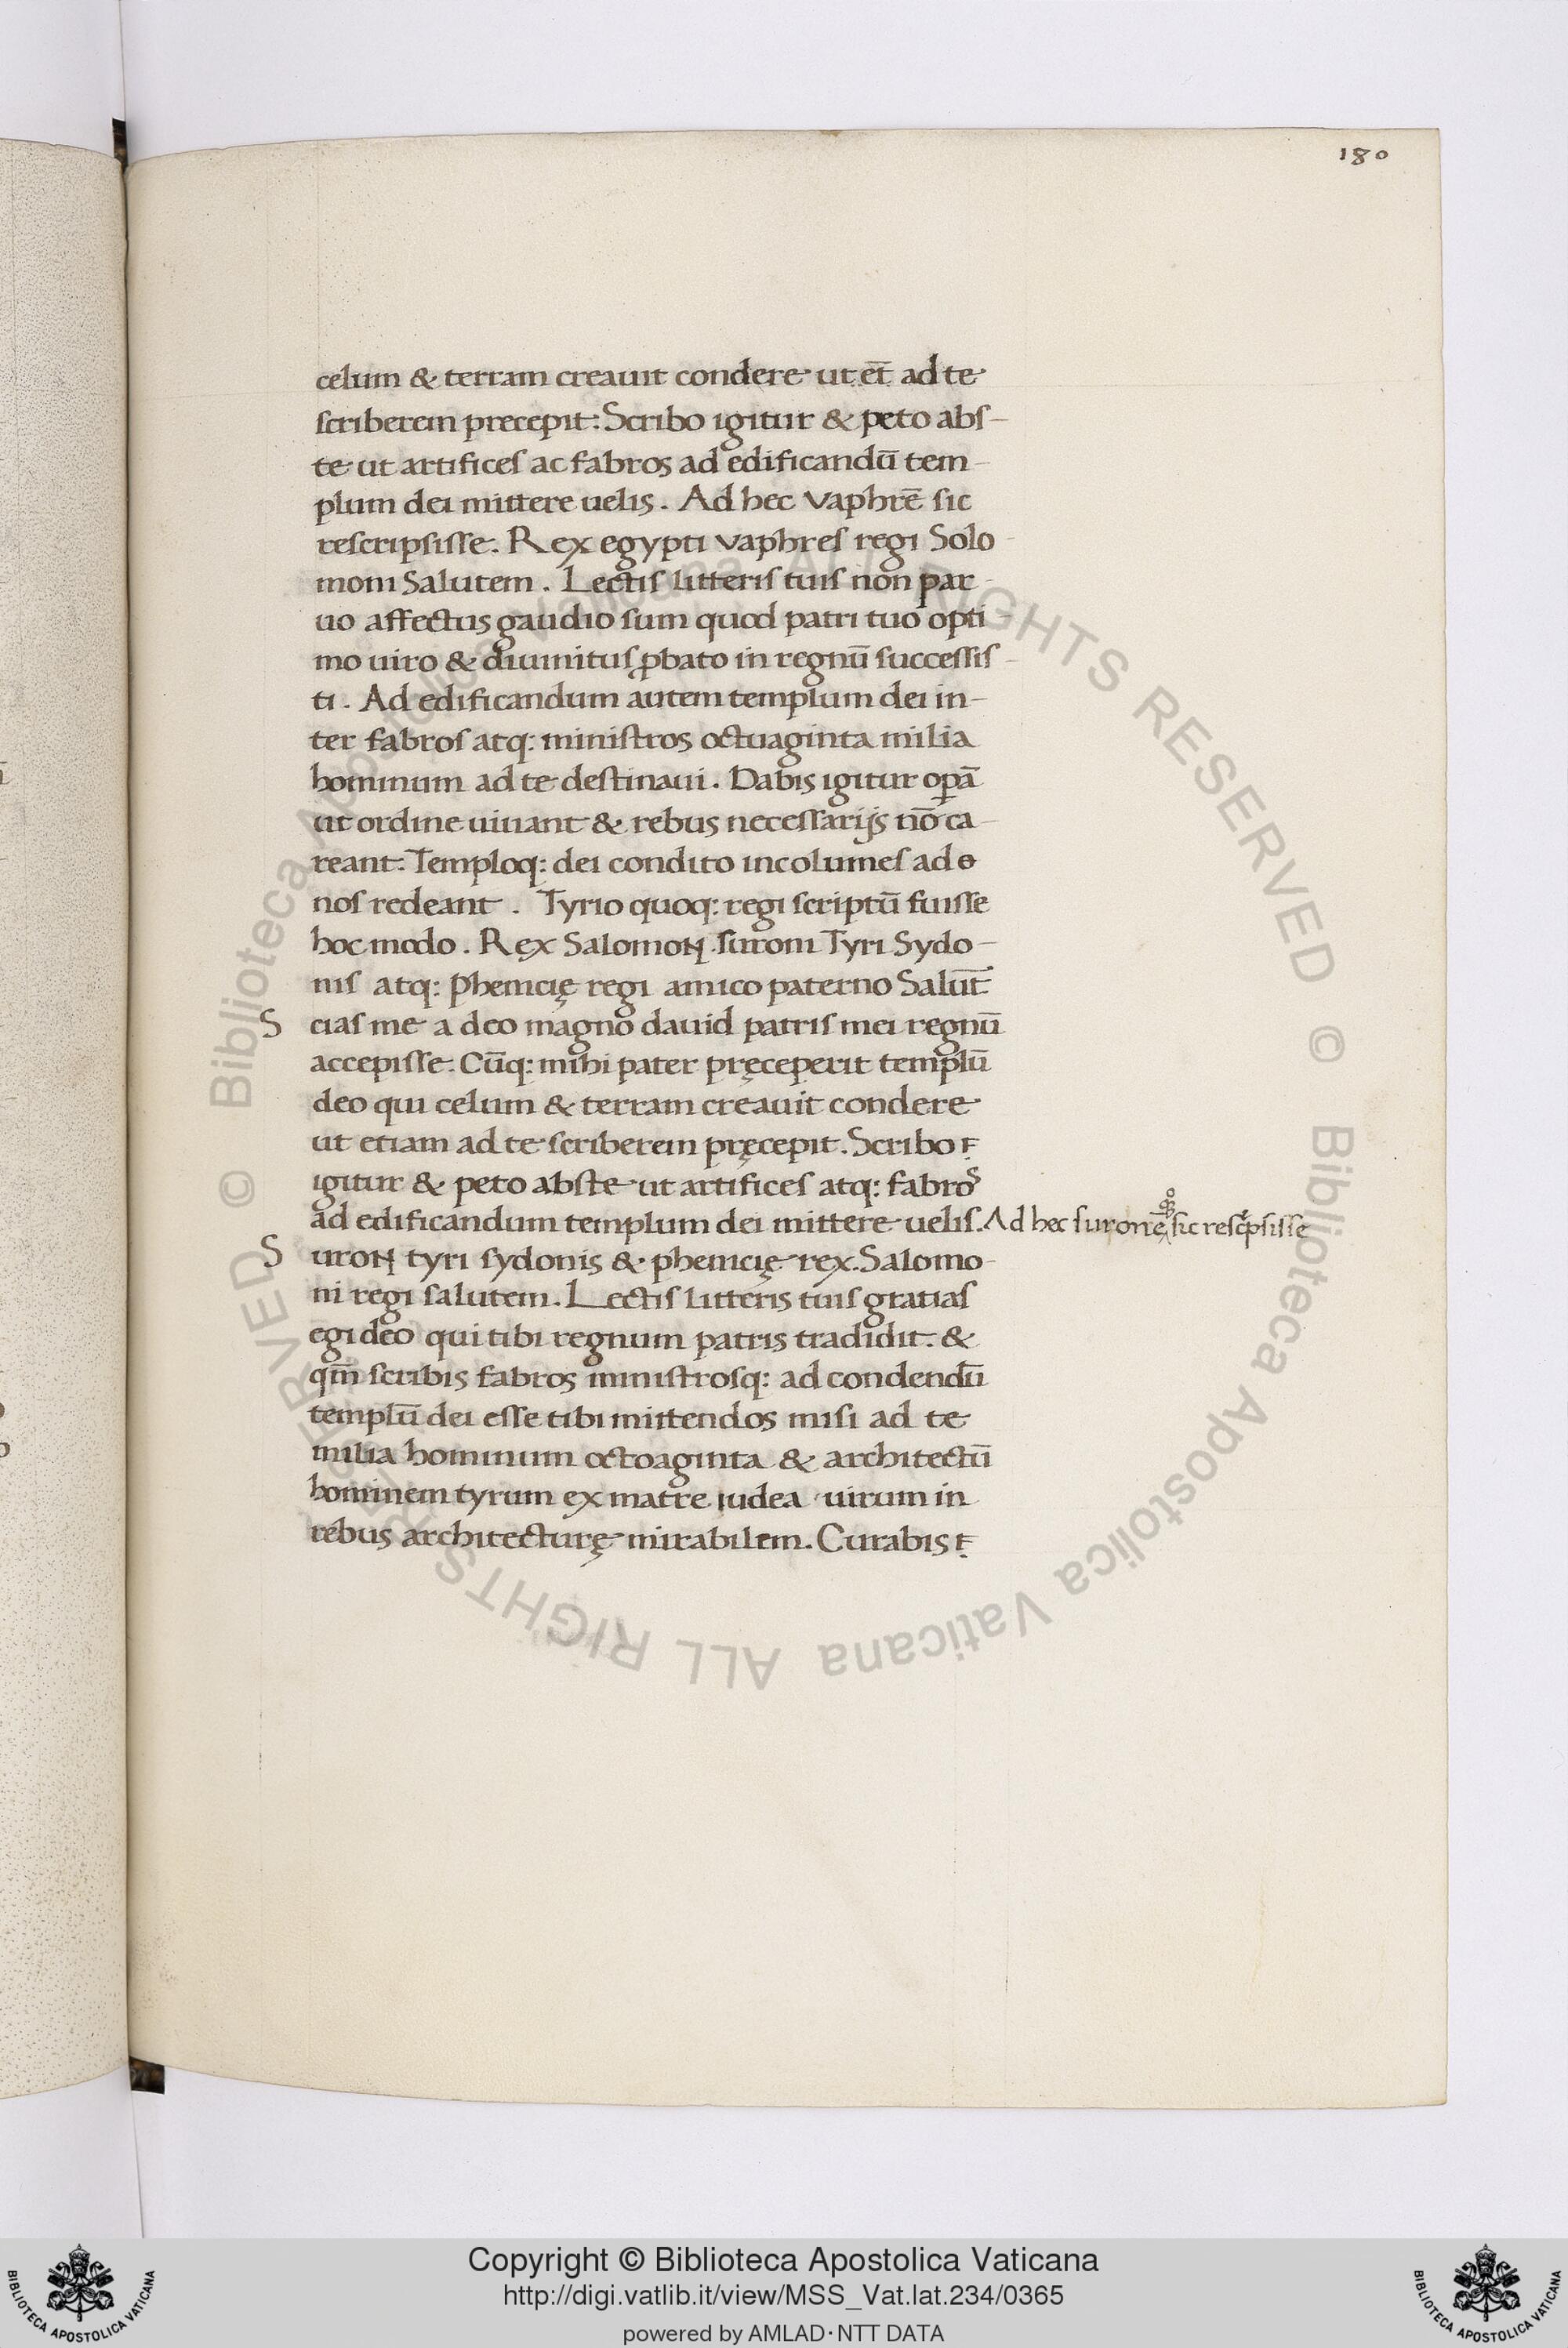 180
celum & terram creauit condere ut et̄ ad te
scriberem precepit: Scribo igitur & peto abſ-
te ut artificeſ ac fabros ad edificandū tem-
plum dei mittere uelis. Ad hec Vaphrē ſic
reſcripſiſſe. Rex egypti vaphreſ regi Solo-
moni Salutem. Lectiſ litteriſ tuiſ non par-
uo affectus gaudio ſum quod patri tuo opti
mo uiro & diuinituſ ꝓbato in regnū ſucceſſiſ-
ti. Ad edificandum autem templum dei in-
ter fabroſ atq: miniſtros octuaginta milia
hominum ad te deſtinaui. Dabis igitur oꝑā
ut ordine uiuant & rebus neceſſarijs nō ca-
reant: Temploq: dei condito incolumeſ ad
noſ redeant. Tyrio quoq: regi ſcriptū fuiſſe
hoc modo. Rex Salomon ſuroni Tyri Sydo-
niſ atq: phenicię regi amico paterno Salut̄
S ciaſ me a deo magno dauid patriſ mei regnū
accepiſſe. Cūq: mihi pater pręceperit templū
deo qui celum & terram creauit condere
ut etiam ad te ſcriberem pręcepit. Scribo
igitur & peto abſte ut artificeſ atq: fabros
ad edificandum templum dei mittere ueliſ. Ad hec ſuronē ſic reſcͥpſiſſe
S uron tyri ſydonis & phenicię rex. Salomo-
ni regi ſalutem. Lectiſ litteris tuiſ gratiaſ
egi deo qui tibi regnum patris tradidit. &
qm̄ ſcribis fabros miniſtroſq: ad condendū
templū dei eſſe tibi mittendos miſi ad te
milia hominum octoaginta & architectū
hominem tyrum ex matre iudea uirum in
rebus architecturę mirabilem. Curabis
© Biblioteca Apostolica Vaticana ALL RIGHTS RESERVED © Biblioteca Apostolica Vaticana ALL RIGHTS RESERVED
BIBLIOTECA APOSTOLICA VATICANA
Copyright © Biblioteca Apostolica Vaticana
http://digi.vatlib.it/view/MSS_Vat.lat.234/0365
powered by AMLAD·NTT DATA
BIBLIOTECA APOSTOLICA VATICANA